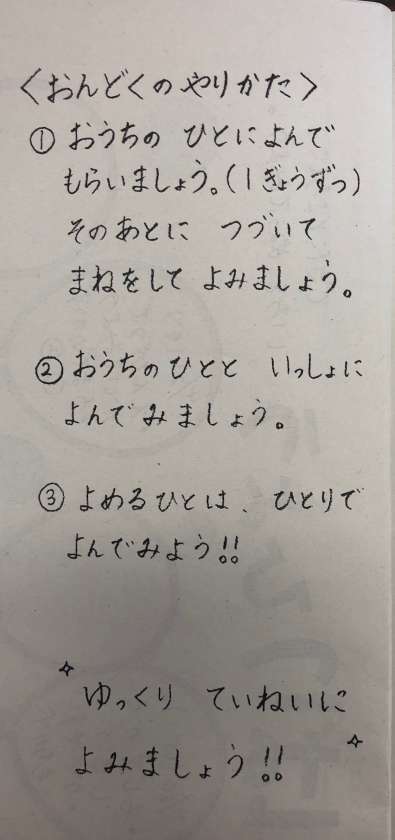 〈おんどくのやりかた〉
① おうちの ひとによんで
もらいましょう。(1ぎょうずつ)
そのあとに つづいて
まねをして よみましょう。
② おうちのひとと いっしょに
よんでみましょう。
③ よめるひとは、ひとりで
よんでみよう!!
ゆっくり ていねいに
よみましょう!!